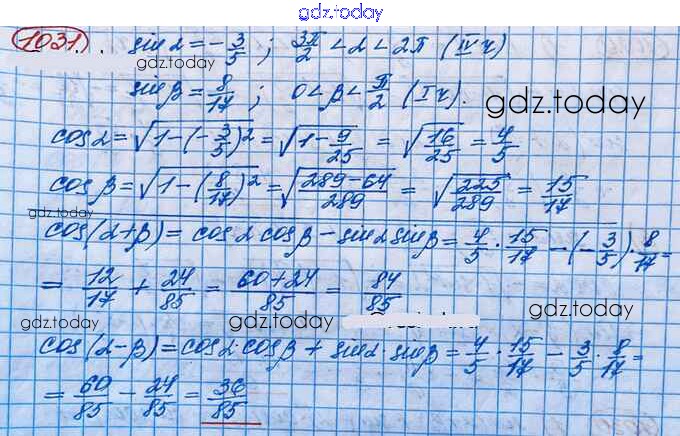 gdz.today
1031. sin α = -3/5; 3π/2 < α < 2π (IV ч)
sin β = 8/17; 0 < β < π/2 (I ч).
gdz.today
cos α = √(1-(-3/5)²) = √(1-9/25) = √(16/25) = 4/5
cos β = √(1-(8/17)²) = √((289-64)/289) = √(225/289) = 15/17
gdz.today
cos(α+β) = cos α cos β - sin α sin β = 4/5 · 15/17 - (-3/5) · 8/17 =
= 12/17 + 24/85 = (60+24)/85 = 84/85
gdz.today
gdz.today gdz.today
cos(α-β) = cos α · cos β + sin α · sin β = 4/5 · 15/17 - 3/5 · 8/17 =
= 60/85 - 24/85 = 36/85
gdz.today